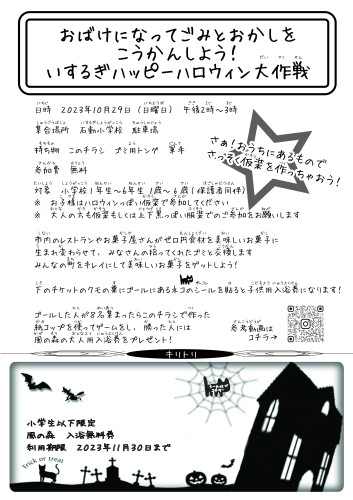 おばけになってごみとおかしを
こうかんしよう！
いするぎハッピーハロウィン大作戦
日時　2023年10月29日（日曜日）　午後2時～3時
集合場所　石動小学校　駐車場
持ち物　このチラシ　ゴミ用トング　軍手
参加費　無料
さぁ！おうちにあるもので
さっそく仮装を作っちゃおう！
対象　小学校1年生～6年生　1歳～6歳（保護者同伴）
※　お子様はハロウィンっぽい仮装で参加してください
※　大人の方も仮装もしくは上下黒っぽい服装でのご参加をお願いします
市内のレストランやお菓子屋さんがゼロ円食材を美味しいお菓子に
生まれ変わらせて、みなさんの拾ってくれたゴミと交換します
みんなの町をキレイにして美味しいお菓子をゲットしよう！
下のチケットのクモの巣にゴールにあるネコのシールを貼ると子供用入浴券になります！
ゴールした人が8名集まったらこのチラシで作った
紙コップを使ってゲームをし、勝った人には
風の森の大人用入浴券をプレゼント！
参考動画は
コチラ→
キリトリ
小学生以下限定
風の森　入浴無料券
利用期限　2023年11月30日まで
Trick or treat